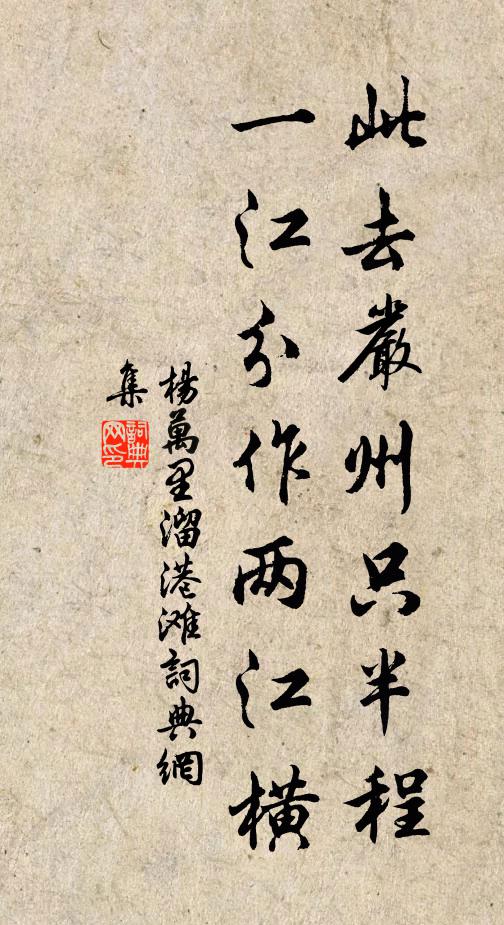 此去嚴州只半程
一江分作两江橫
楊萬里溜港滩詞典網
集
詞典网印